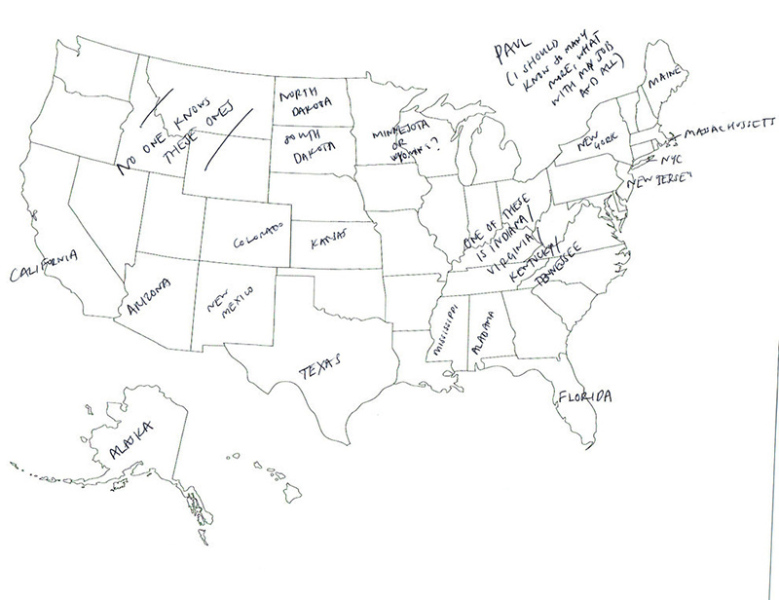 PAUL
(I SHOULD
KNOW SO MANY
MORE, WHAT
WITH MY JOB
AND ALL)
MAINE
NORTH
DAKOTA
NO ONE KNOWS
THESE ONES
SOUTH
DAKOTA
MINNESOTA
OR
?
NEW
YORK
MASSACHUSSETS
NYC
NEW JERSEY
ONE OF THESE
IS INDIANA/
VIRGINIA/
KENTUCKY/
TENNESSEE
COLORADO
KANSAS
CALIFORNIA
ARIZONA
NEW
MEXICO
MISSISSIPPI
ALABAMA
TEXAS
FLORIDA
ALASKA